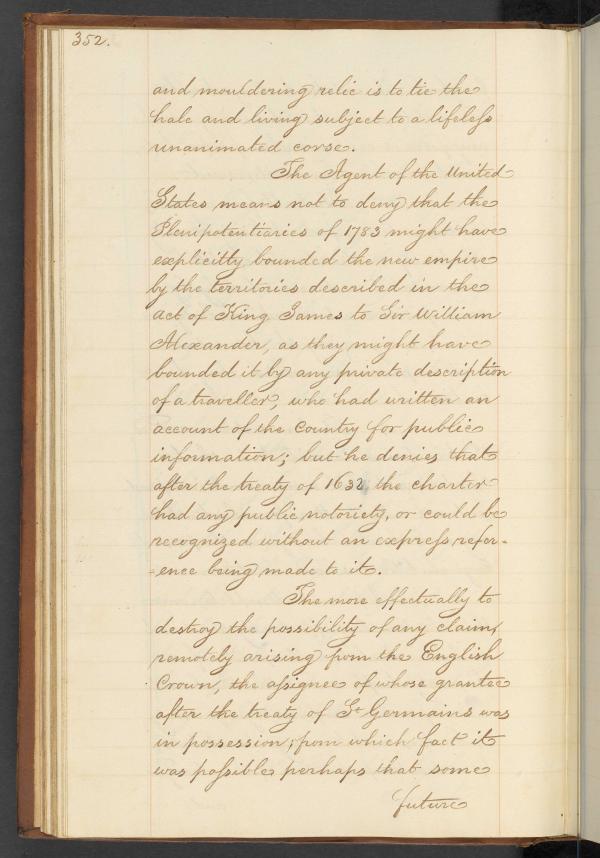 352.
and mouldering relic is to tie the
hale and living subject to a lifeless
unanimated corse.
The Agent of the United
States means not to deny that the
Plenipotentiaries of 1783 might have
explicitly bounded the new empire
by the territories described in the
act of King James to Sir William
Alexander, as they might have
bounded it by any private description
of a traveller, who had written an
account of the country for public
information; but he denies that
after the treaty of 1632, the charter
had any public notoriety, or could be
recognized without an express refer-
-ence being made to it.
The more effectually to
destroy the possibility of any claim,
remotely arising from the English
Crown, the assignee of whose grantee
after the treaty of St Germains was
in possession; from which fact it
was possible perhaps that some
future